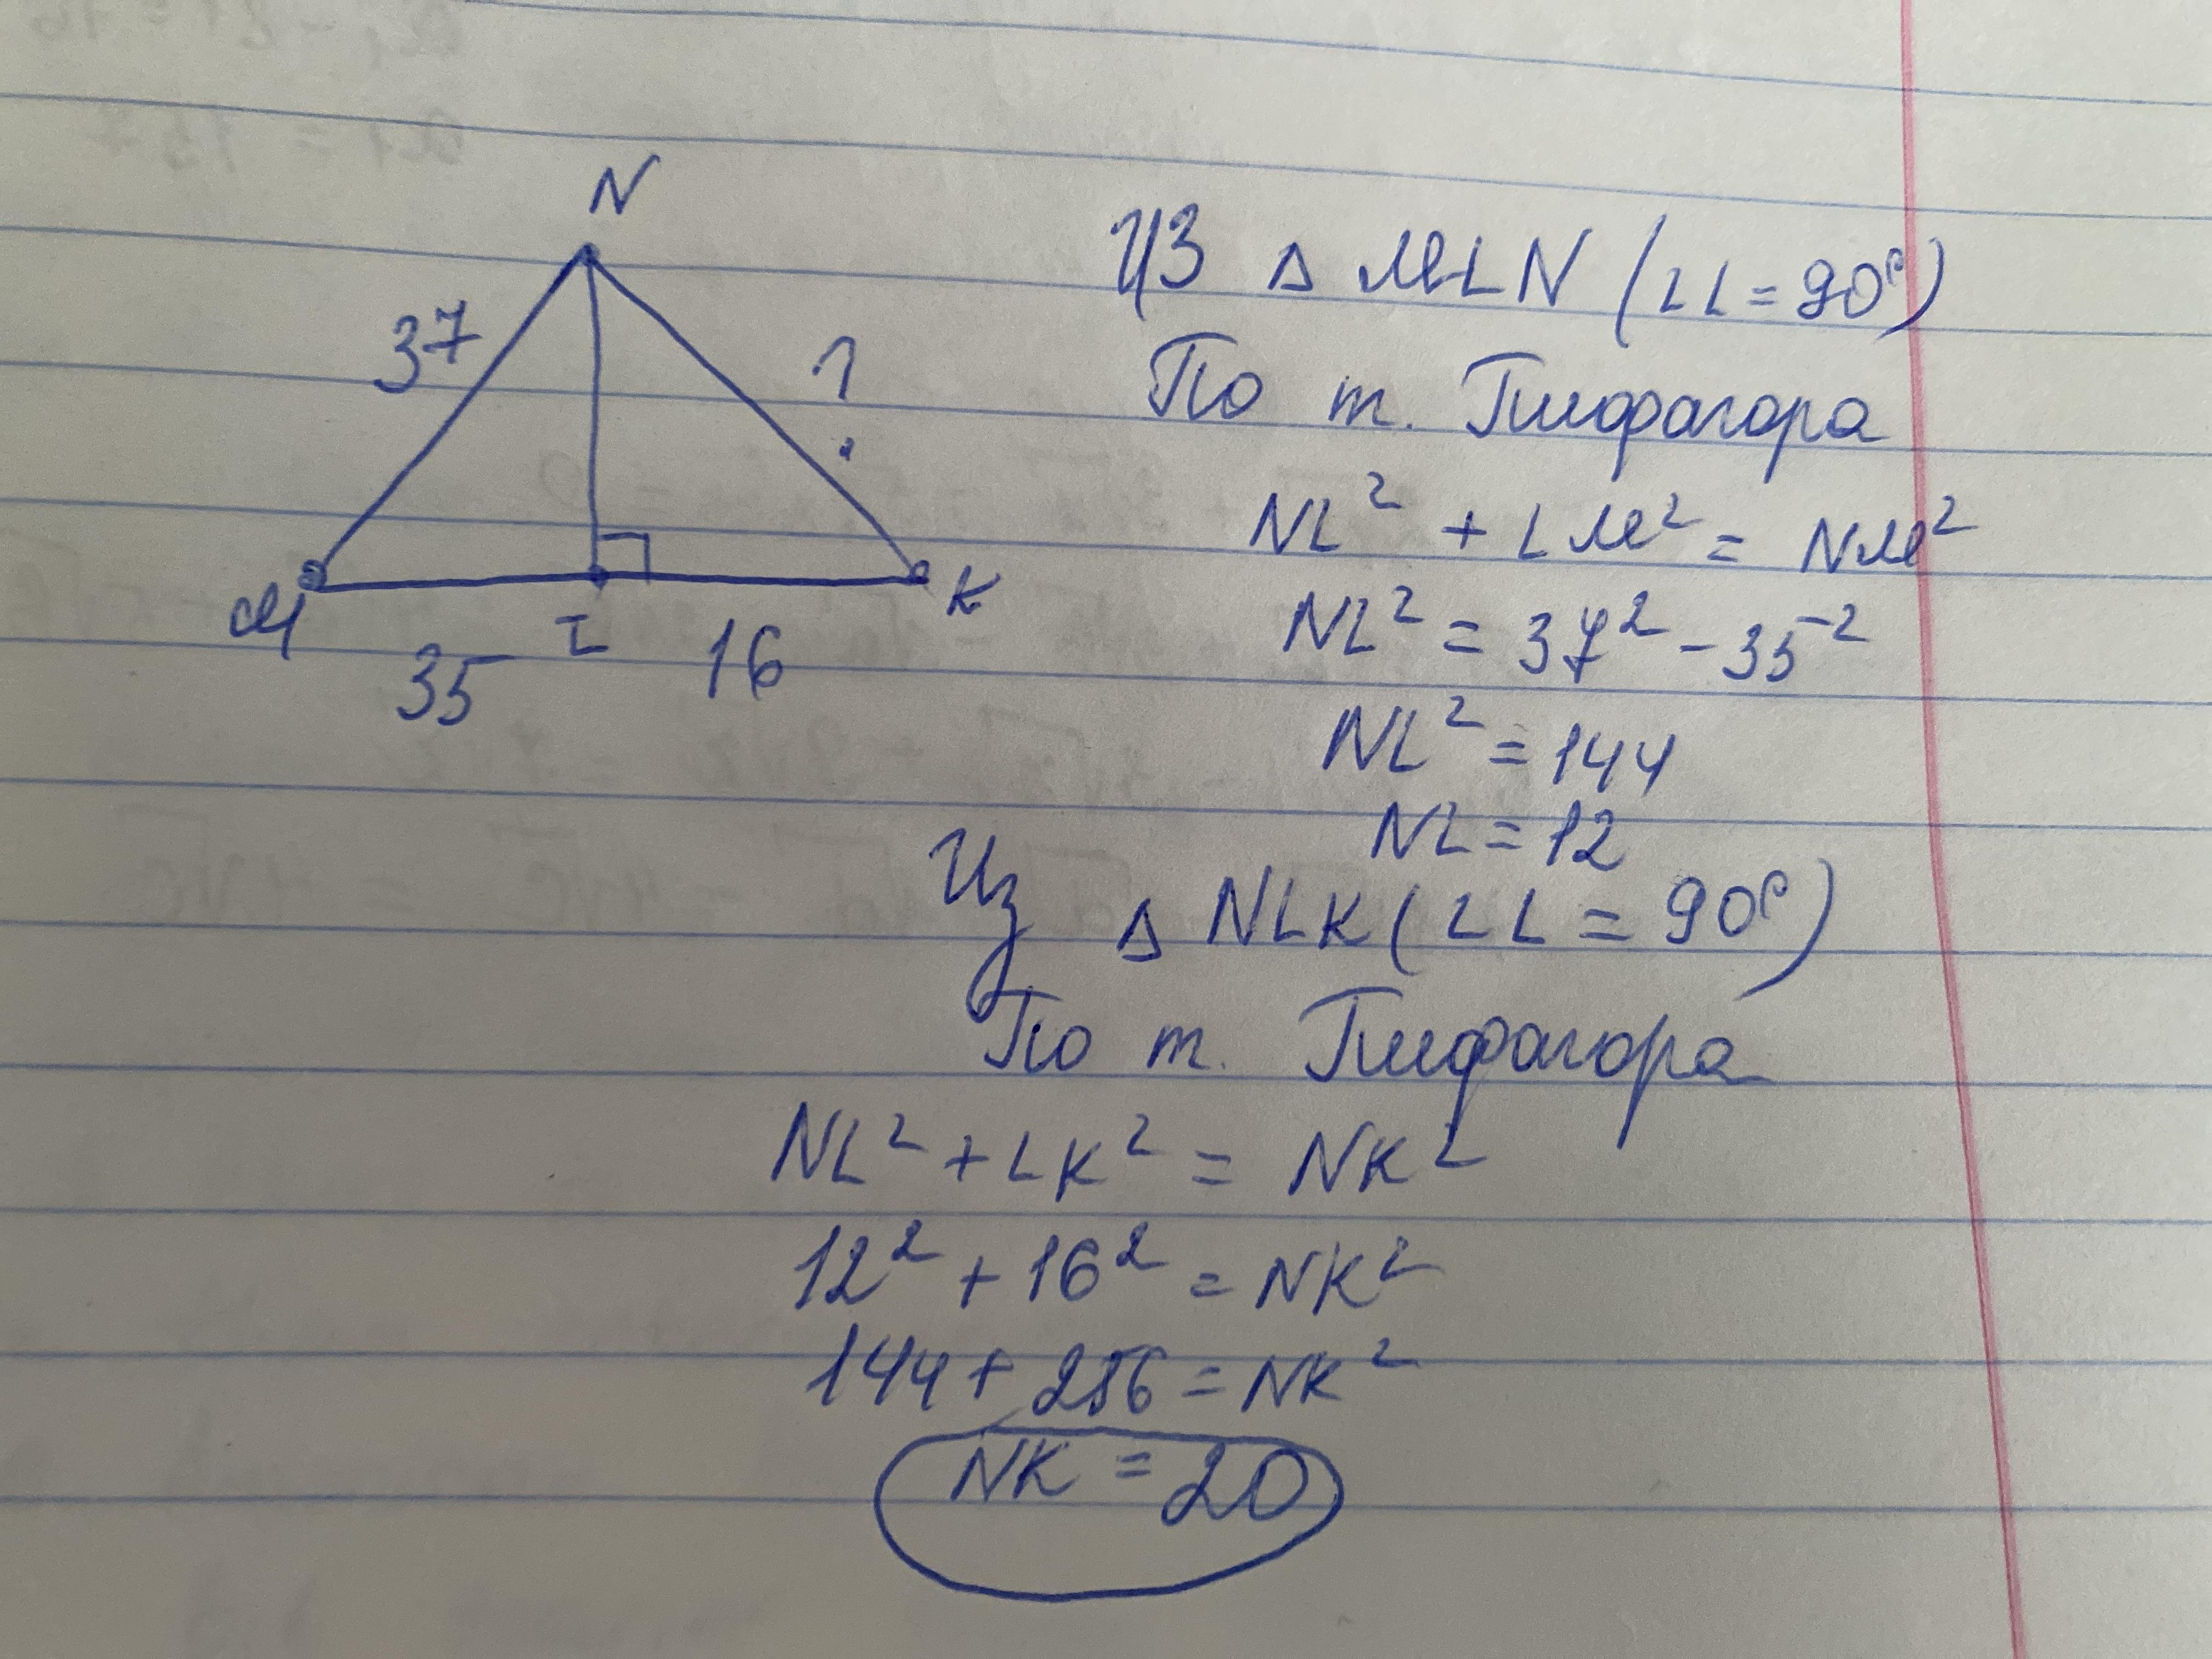 N
37
?
M
L
K
35
16
Из △ MLN (∠L = 90°)
По т. Пифагора
NL² + LM² = NM²
NL² = 37² - 35²
NL² = 144
NL = 12
Из △ NLK (∠L = 90°)
По т. Пифагора
NL² + LK² = NK²
12² + 16² = NK²
144 + 256 = NK²
NK = 20